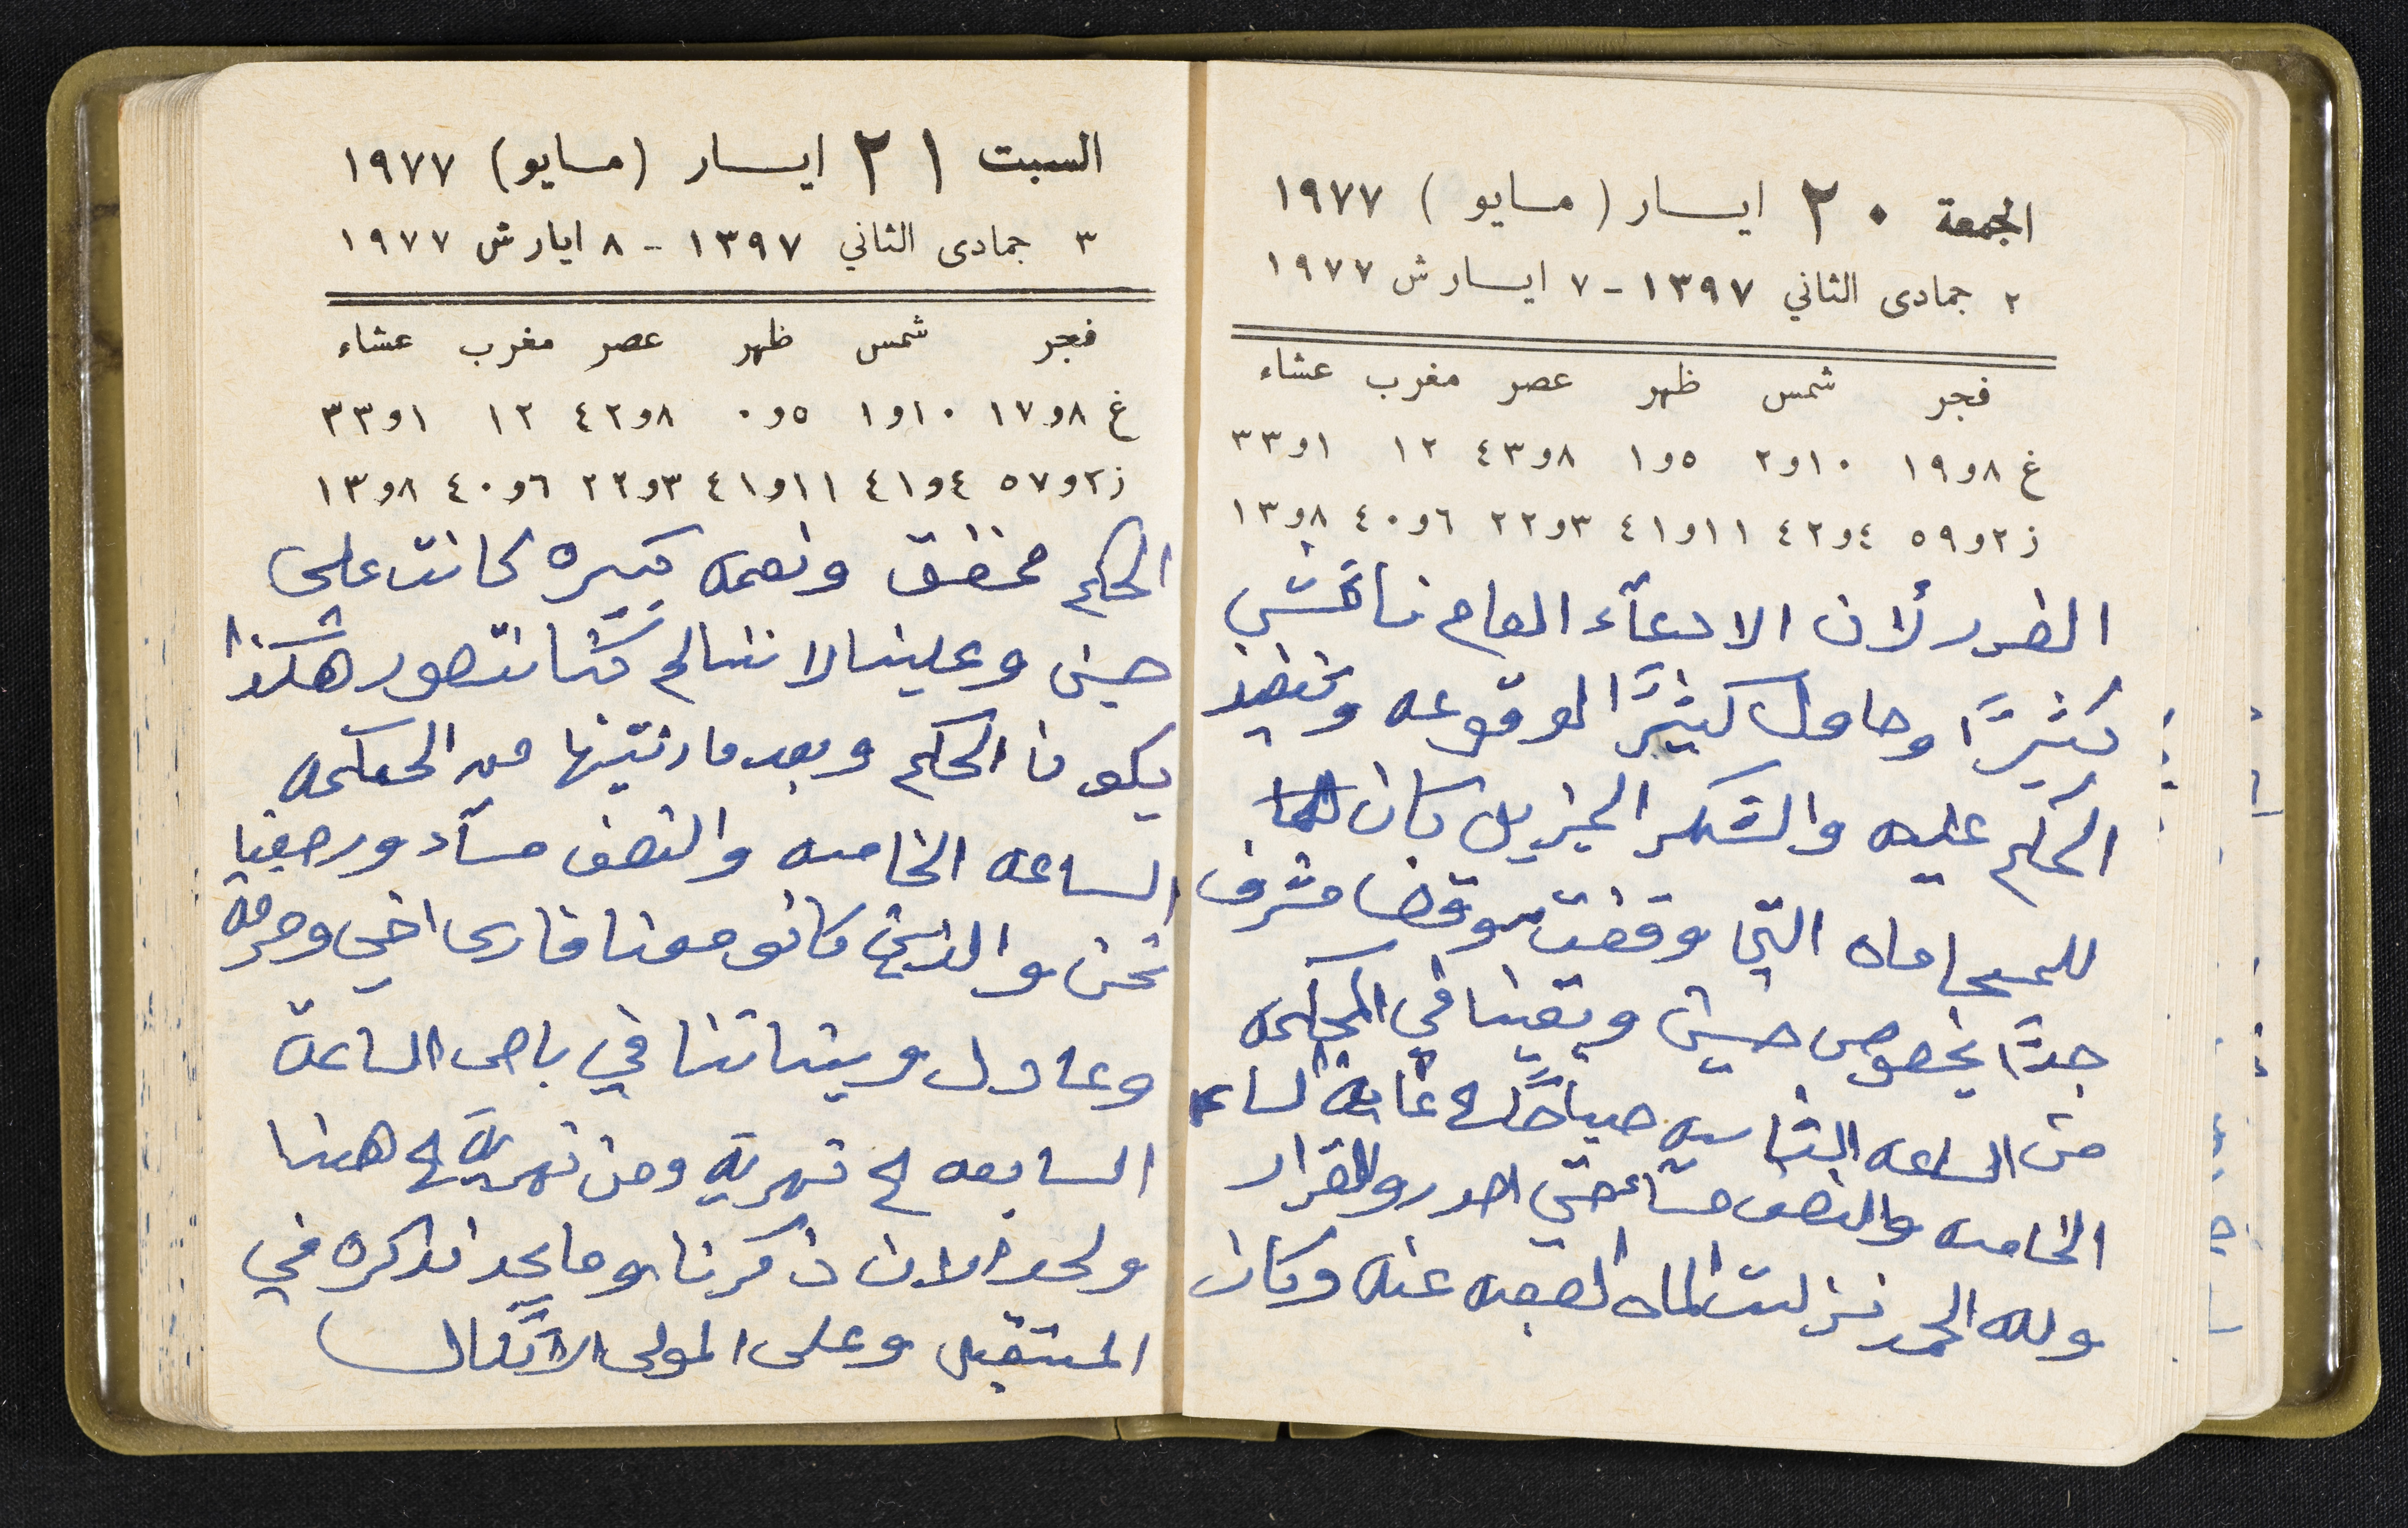 الجمعة ٢٠ ايسار (مسايو) ١٩٧٧
٢ جمادى الثاني ١٣٩٧ - ٧ ايسارش ١٩٧٧
فجر شمس ظهر عصر مغرب عشاء
غ ٨و١٩ ١٠و٢ ٥و١ ٨و٤٣ ١٢ ١و٣٣
ز ٢و٥٩ ٤و٤٢ ١١و٤١ ٣و٢٢ ٦و٤٠ ٨و١٣
الضرر لأن الادعآء العام ناقش
كثيرًا وحاول كثيرًا لوقوعه وتنفيذ
الحكم عليه والشكر الجزيل كان
للمحاماه التي وقفت موقفا مشرف
جدًا بخصوص حسين وبقينا في المحكمه
من الساعه الثامنه صباحًا لغاية الساعه
الخامسه والنصف مساءً حتى اصدرو القرار
ولله الحمد نزلت الماده الصعبه عنه وكان
السبت ٢١ ايسار (مسايو) ١٩٧٧
٣ جمادى الثاني ١٣٩٧ - ٨ ايارش ١٩٧٧
فجر شمس ظهر عصر مغرب عشاء
غ ٨و١٧ ١٠و١ ٥و٠ ٨و٤٢ ١٢ ١و٣٣
ز ٢و٥٧ ٤و٤١ ١١و٤١ ٣و٢٢ ٦و٤٠ ٨و١٣
الحكم مخفف ونعمه كبيره كانت على
حسين وعلينا لاننا لم كنا نتصور هكذا
يكون الحكم وبعد ما انتهينا من المحكمه
الساعه الخامسه والنصف مسآء ورجعنا
نحن والذين كانو معنا فارس اخي وحرمه
وعادل وبناتنا في باص الساعة
السابعه ل نهرية ومن نهرية ل هنا
ولحد الان ذكرنا وما يجد نذكره في
المستقبل وعلى المولى الاتكال